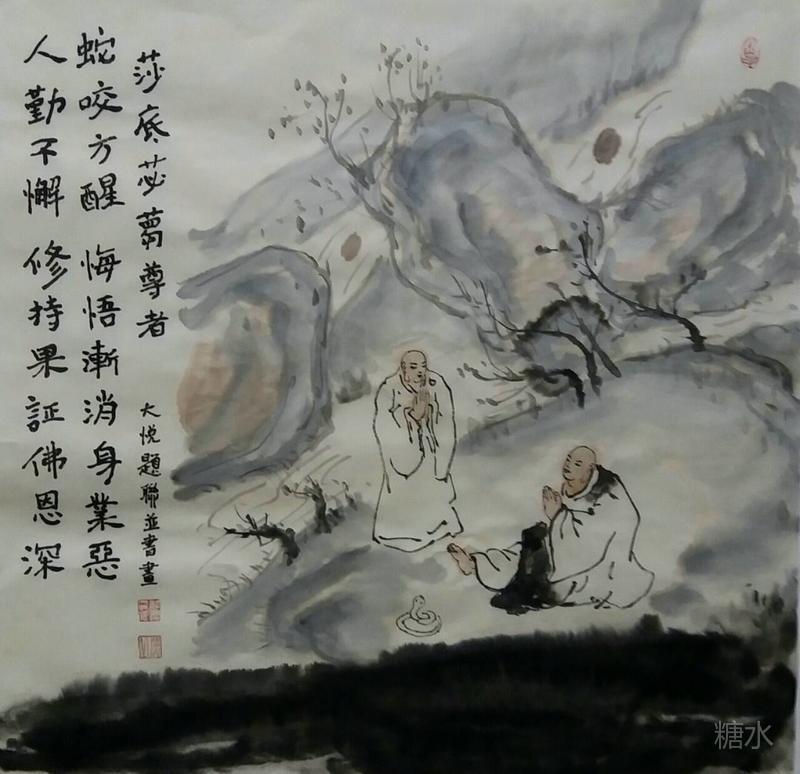 莎底苾蒭尊者
大悦題聯並書畫
蛇咬方醒 悔悟漸消身業惡
人勤不懈 修持果証佛恩深
糖水